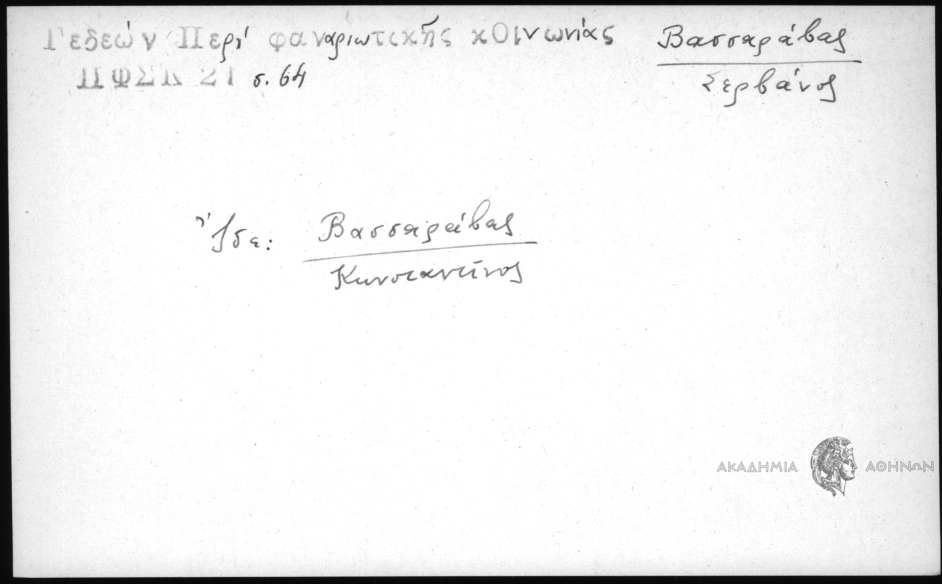 Γεδεών Περί φαναριωτικῆς κοινωνίας
ΠΦΣΚ 21 σ. 64
Βασσαράβας
Σερβάνος
Ἴδε: Βασσαράβας
Κωνσταντῖνος
ΑΚΑΔΗΜΙΑ ΑΘΗΝΩΝ